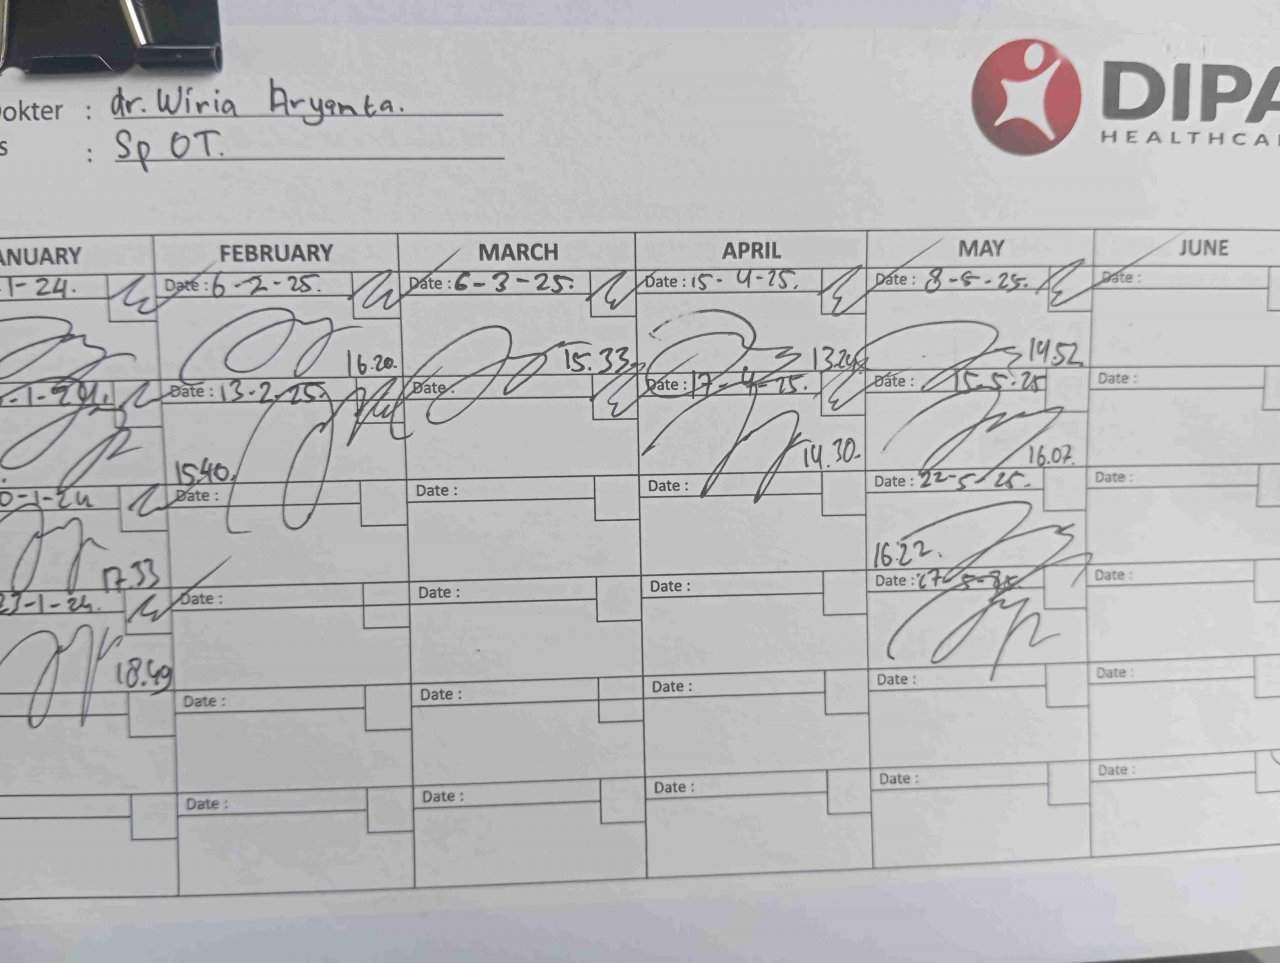 okter : dr. Wiria Aryanta.
s : Sp OT.
DIPA
HEALTHCAR
ANUARY FEBRUARY MARCH APRIL MAY JUNE
1-24. Date : 6-2-25. Date : 6-3-25. Date : 15-4-25. Date : 8-5-25. Date :
16.20. 15.33 13.24 14.52
-1-24. Date : 13-2-25. Date : Date : 17-4-25. Date : 15-5-25 Date :
15.40. 14.30. 16.07.
0-1-24 Date : Date : Date : Date : 22-5-25. Date :
17.33 16.22.
23-1-24. Date : Date : Date : Date : 27-5-25 Date :
18.49
Date : Date : Date : Date : Date :
Date : Date : Date : Date : Date :